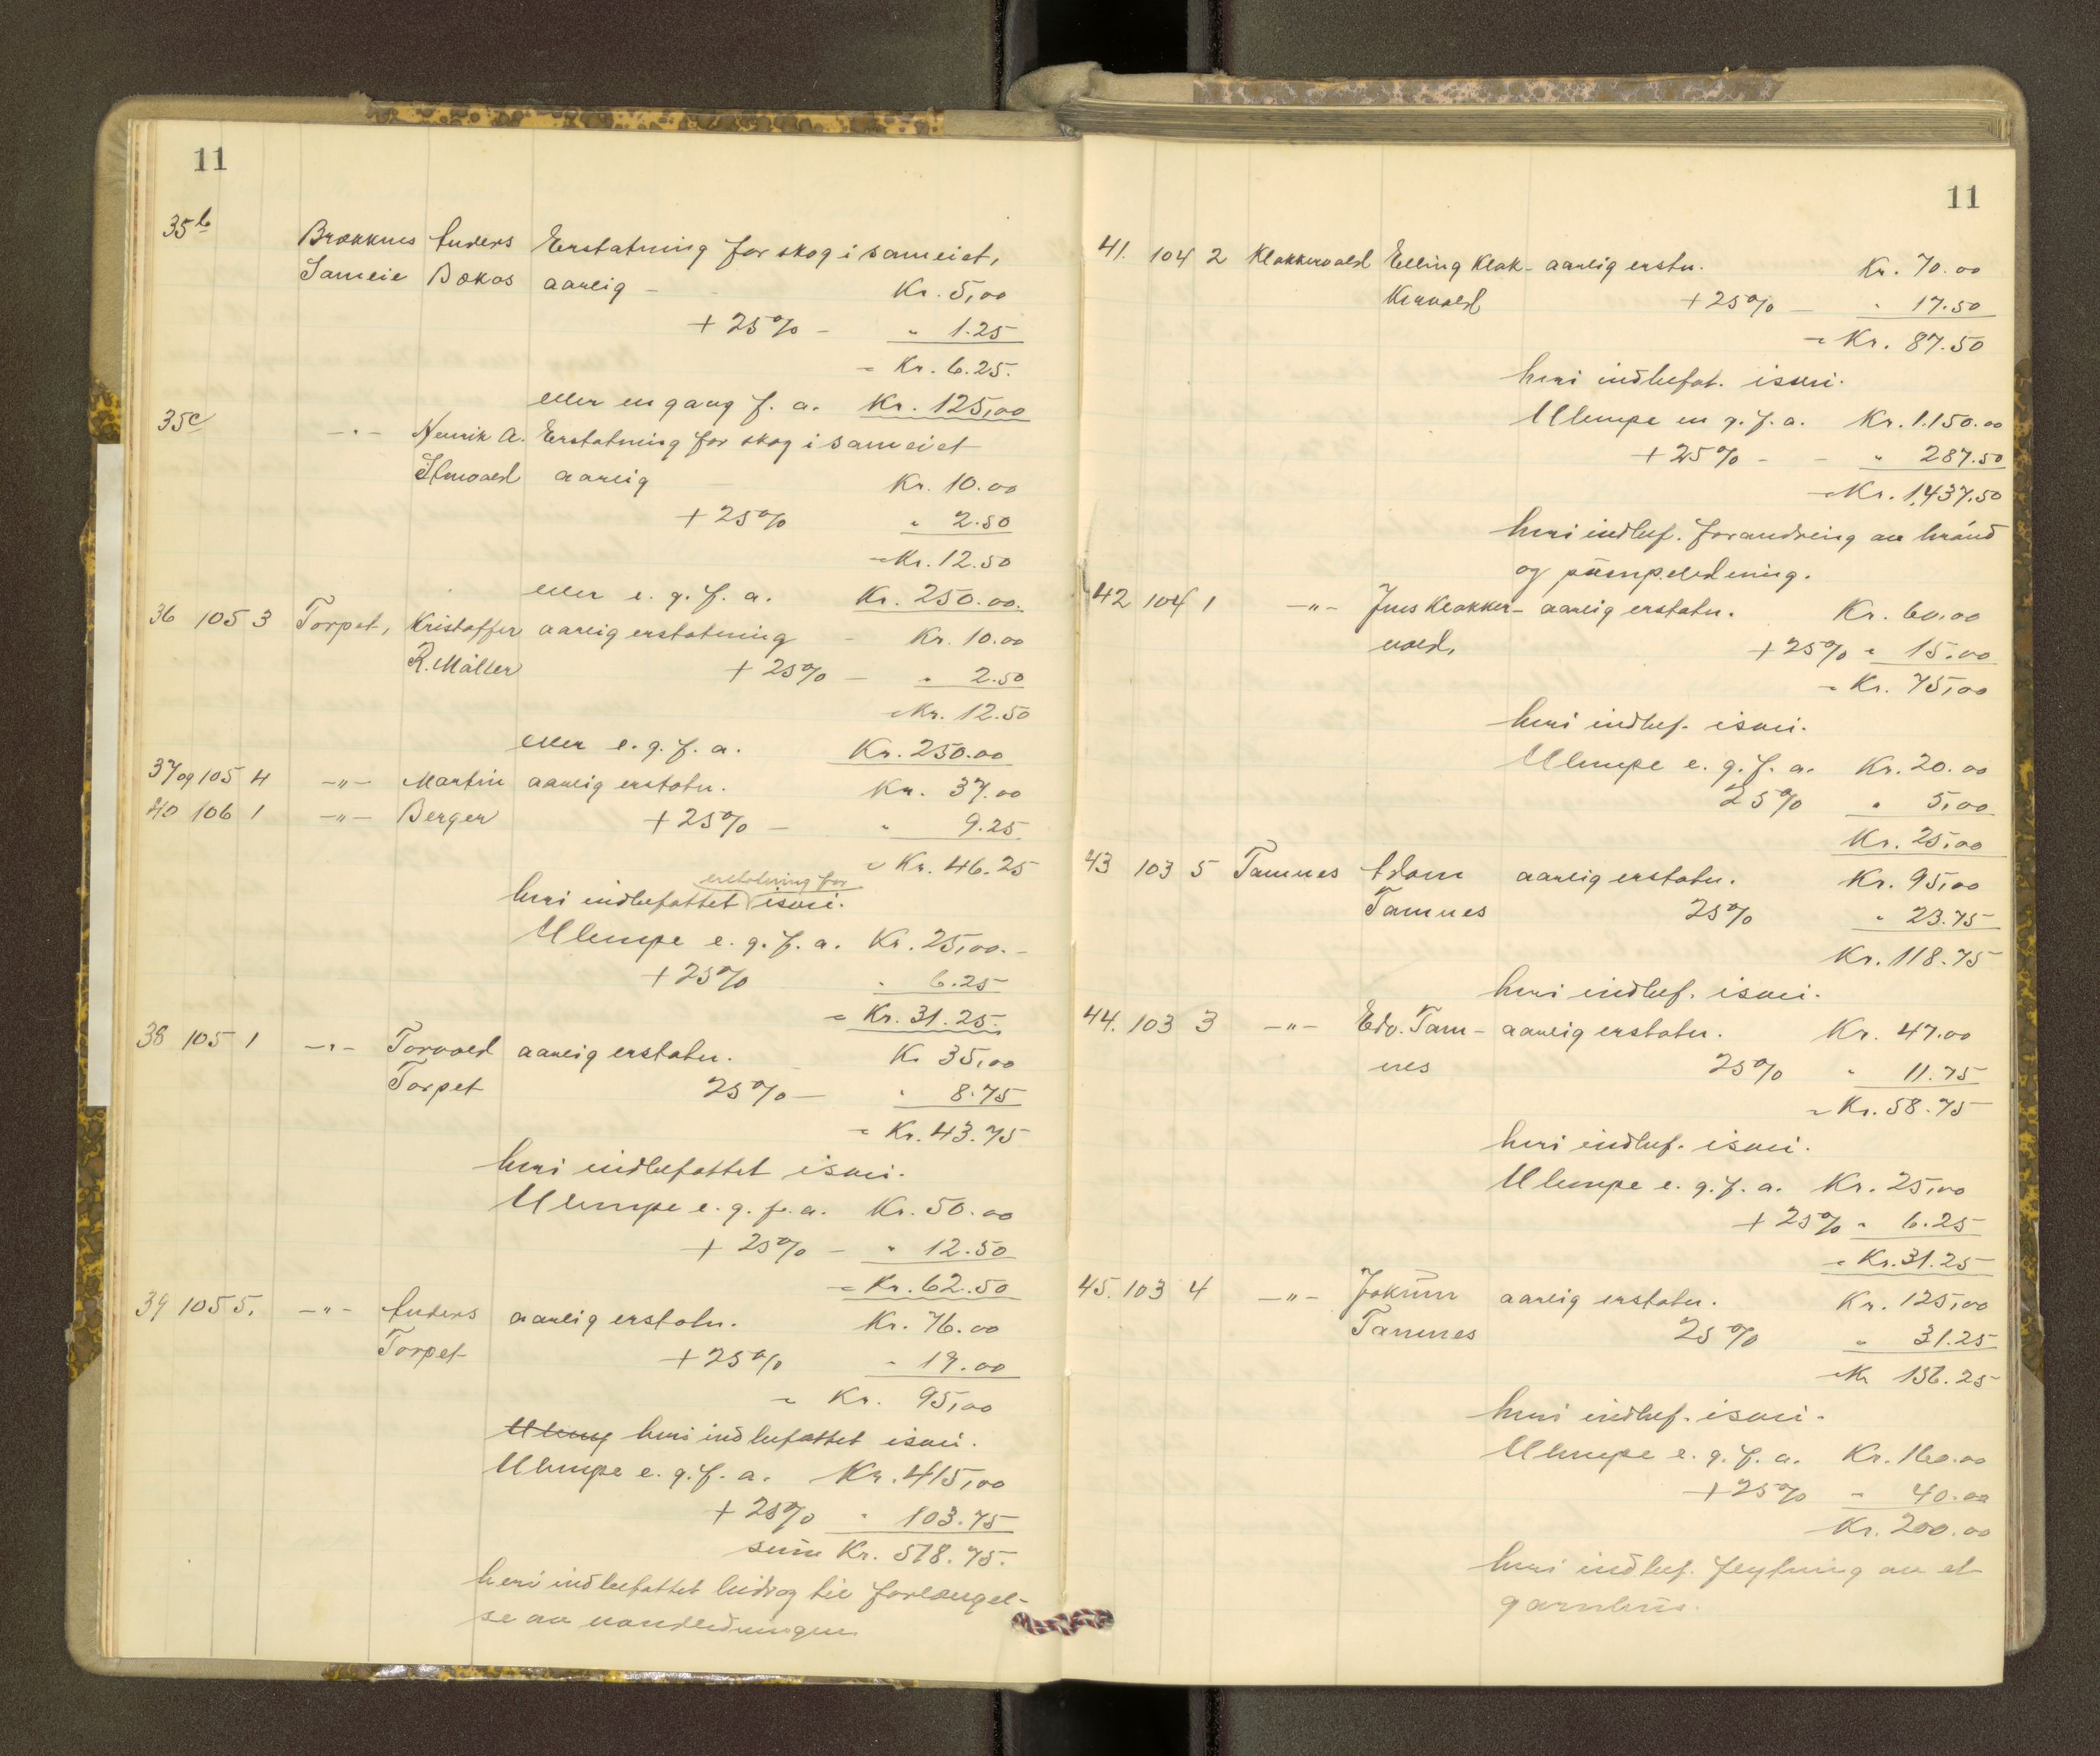 11
35b Brækknes Anders Erstatning for skog i sameiet,
Sameie Bokos aarlig - Kr. 5,00
+ 25% - " 1.25
= Kr. 6.25.
eller en gang f. a. Kr. 125,00
35c -"- Henrik A. Erstatning for skog i sameiet
aarlig Kr. 10.00
+ 25% " 2.50
= Kr. 12.50
eller e. g. f. a. Kr. 250.00.
36 105 3 Torpet, Kristoffer aarlig erstatning - Kr. 10.00
R. Møller + 25% - " 2.50
= Kr. 12.50
eller e. g. f. a. Kr. 250.00
37 og 105 4 -"- Martin aarlig erstatn. Kr. 37.00
40 106 1 -"- Berger + 25% - " 9.25
= Kr. 46.25
erstatning for
heri indbefattet isvei.
Ulempe e. g. f. a. Kr. 25,00.-
+ 25% " 6.25
= Kr. 31.25.
38 105 1 -"- Torvald aarlig erstatn. Kr 35,00
Torpet 25% - " 8.75
= Kr. 43.75
heri indbefattet isvei.
Ulempe e. g. f. a. Kr. 50.00
+ 25% - " 12.50
= Kr. 62.50
39 105 5. -"- Anders aarlig erstatn. Kr. 76.00
Torpet + 25% " 19.00
= Kr. 95,00
Ulemp heri indbefattet isvei.
Ulempe e. g. f. a. Kr. 415,00
+ 25% " 103.75
sum Kr. 518.75.
heri indbefattet bidrag til forlængel-
se av vandledningen
11
41. 104 2 Klokkervold Elling Klok- aarlig erstn. Kr. 70.00
kervold + 25% - " 17.50
= Kr. 87.50
heri indbefat. isvei.
Ulempe en g. f. a. Kr. 1.150.00
+ 25% - - " 287.50
= Kr. 1.437.50
heri indbef. forandring av brønd
og pumpeledning.
42 104 1 -"- Jens Klokker- aarlig erstatn. Kr. 60.00
vold, + 25% " 15.00
= Kr. 75,00
heri indbef. isvei.
Ulempe e. g. f. a. Kr. 20.00
25% " 5,00
Kr. 25,00
43 103 5 Tamnes Adam aarlig erstatn. Kr. 95,00
Tamnes 25% " 23.75
Kr. 118.75
heri indbef. isvei.
44. 103 3 -"- Edv. Tam- aarlig erstatn. Kr. 47.00
nes 25% " 11.75
= Kr. 58.75
heri indbef. isvei.
Ulempe e. g. f. a. Kr. 25,00
+ 25% " 6.25
= Kr. 31.25
45. 103 4 -"- Jokum aarlig erstatn. Kr. 125,00
Tamnes 25% " 31.25
= Kr 156.25
heri indbef. isvei.
Ulempe e. g. f. a. Kr. 160.00
+ 25% " 40.00
Kr. 200.00
heri indbef. flytning av et
garnhus.